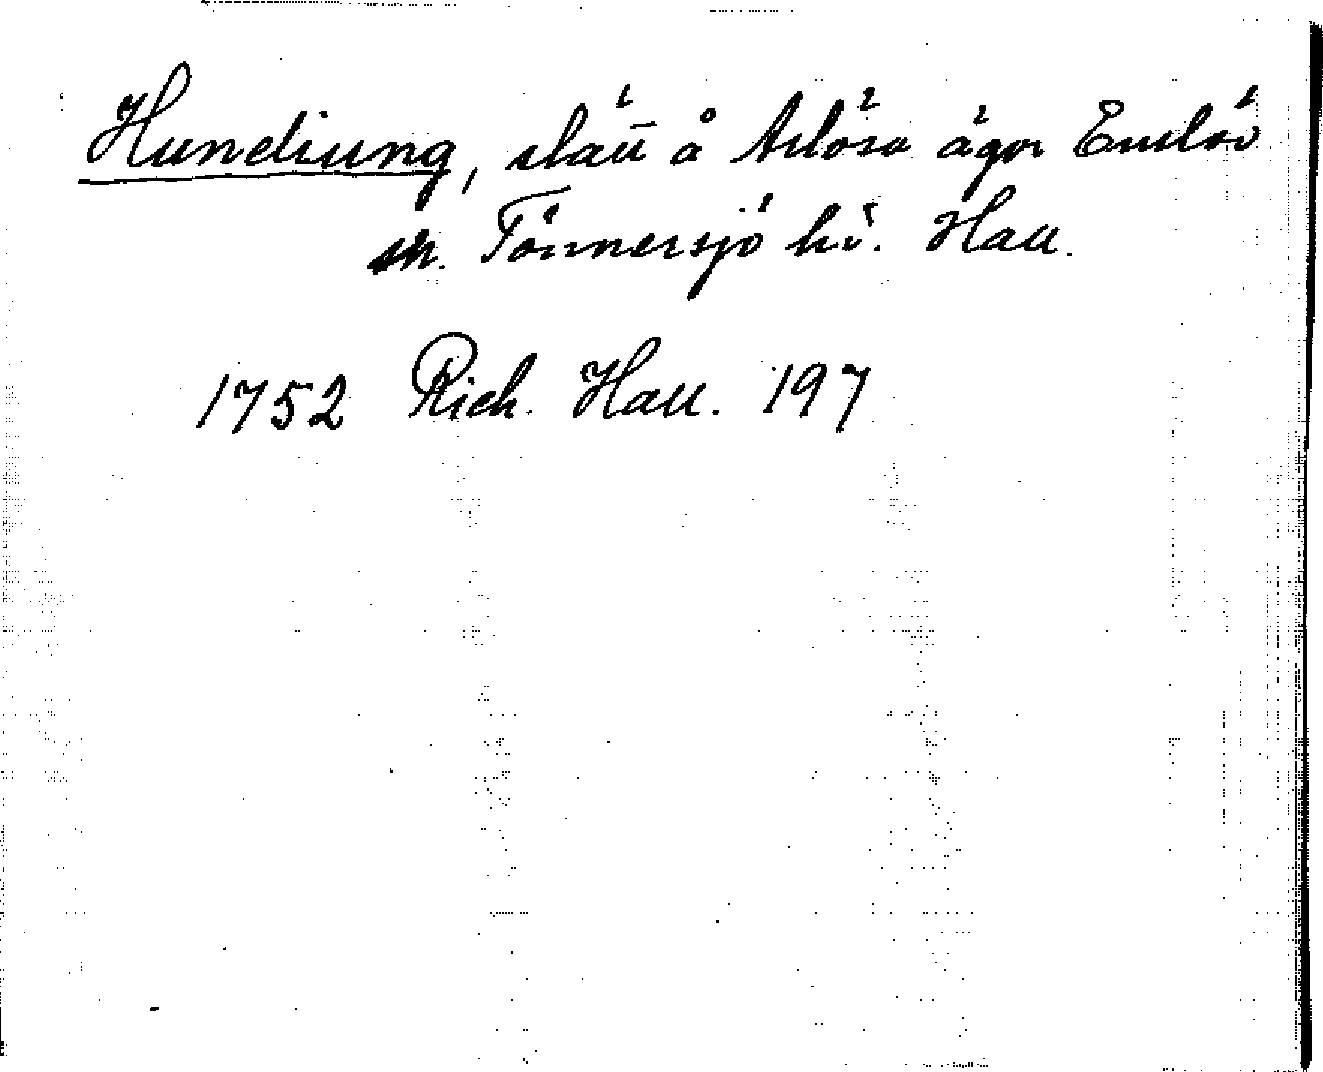 Hundiung, slätt å Arlösa ägor Enslöv
sn. Tönnersjö hd. Hall.
1752 Rich. Hall. 197